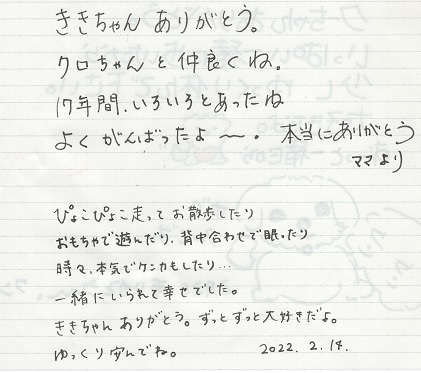 ききちゃん ありがとう。
クロちゃんと仲良くね。
17年間、いろいろとあったね
よく がんばったよ〜。 本当にありがとう
ママより
ぴょこぴょこ走って お散歩したり
おもちゃで遊んだり、背中合わせで眠ったり
時々、本気でケンカもしたり…
一緒にいられて幸せでした。
ききちゃん ありがとう。ずっとずっと大好きだよ。
ゆっくり休んでね。 2022. 2. 14.